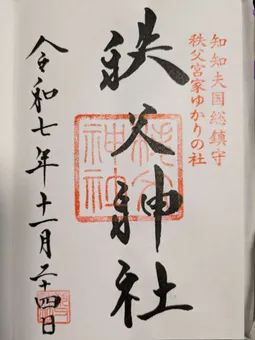 知知夫国総鎮守
秩父宮家ゆかりの社
秩父神社
秩父
神社
令和七年十一月二十四日